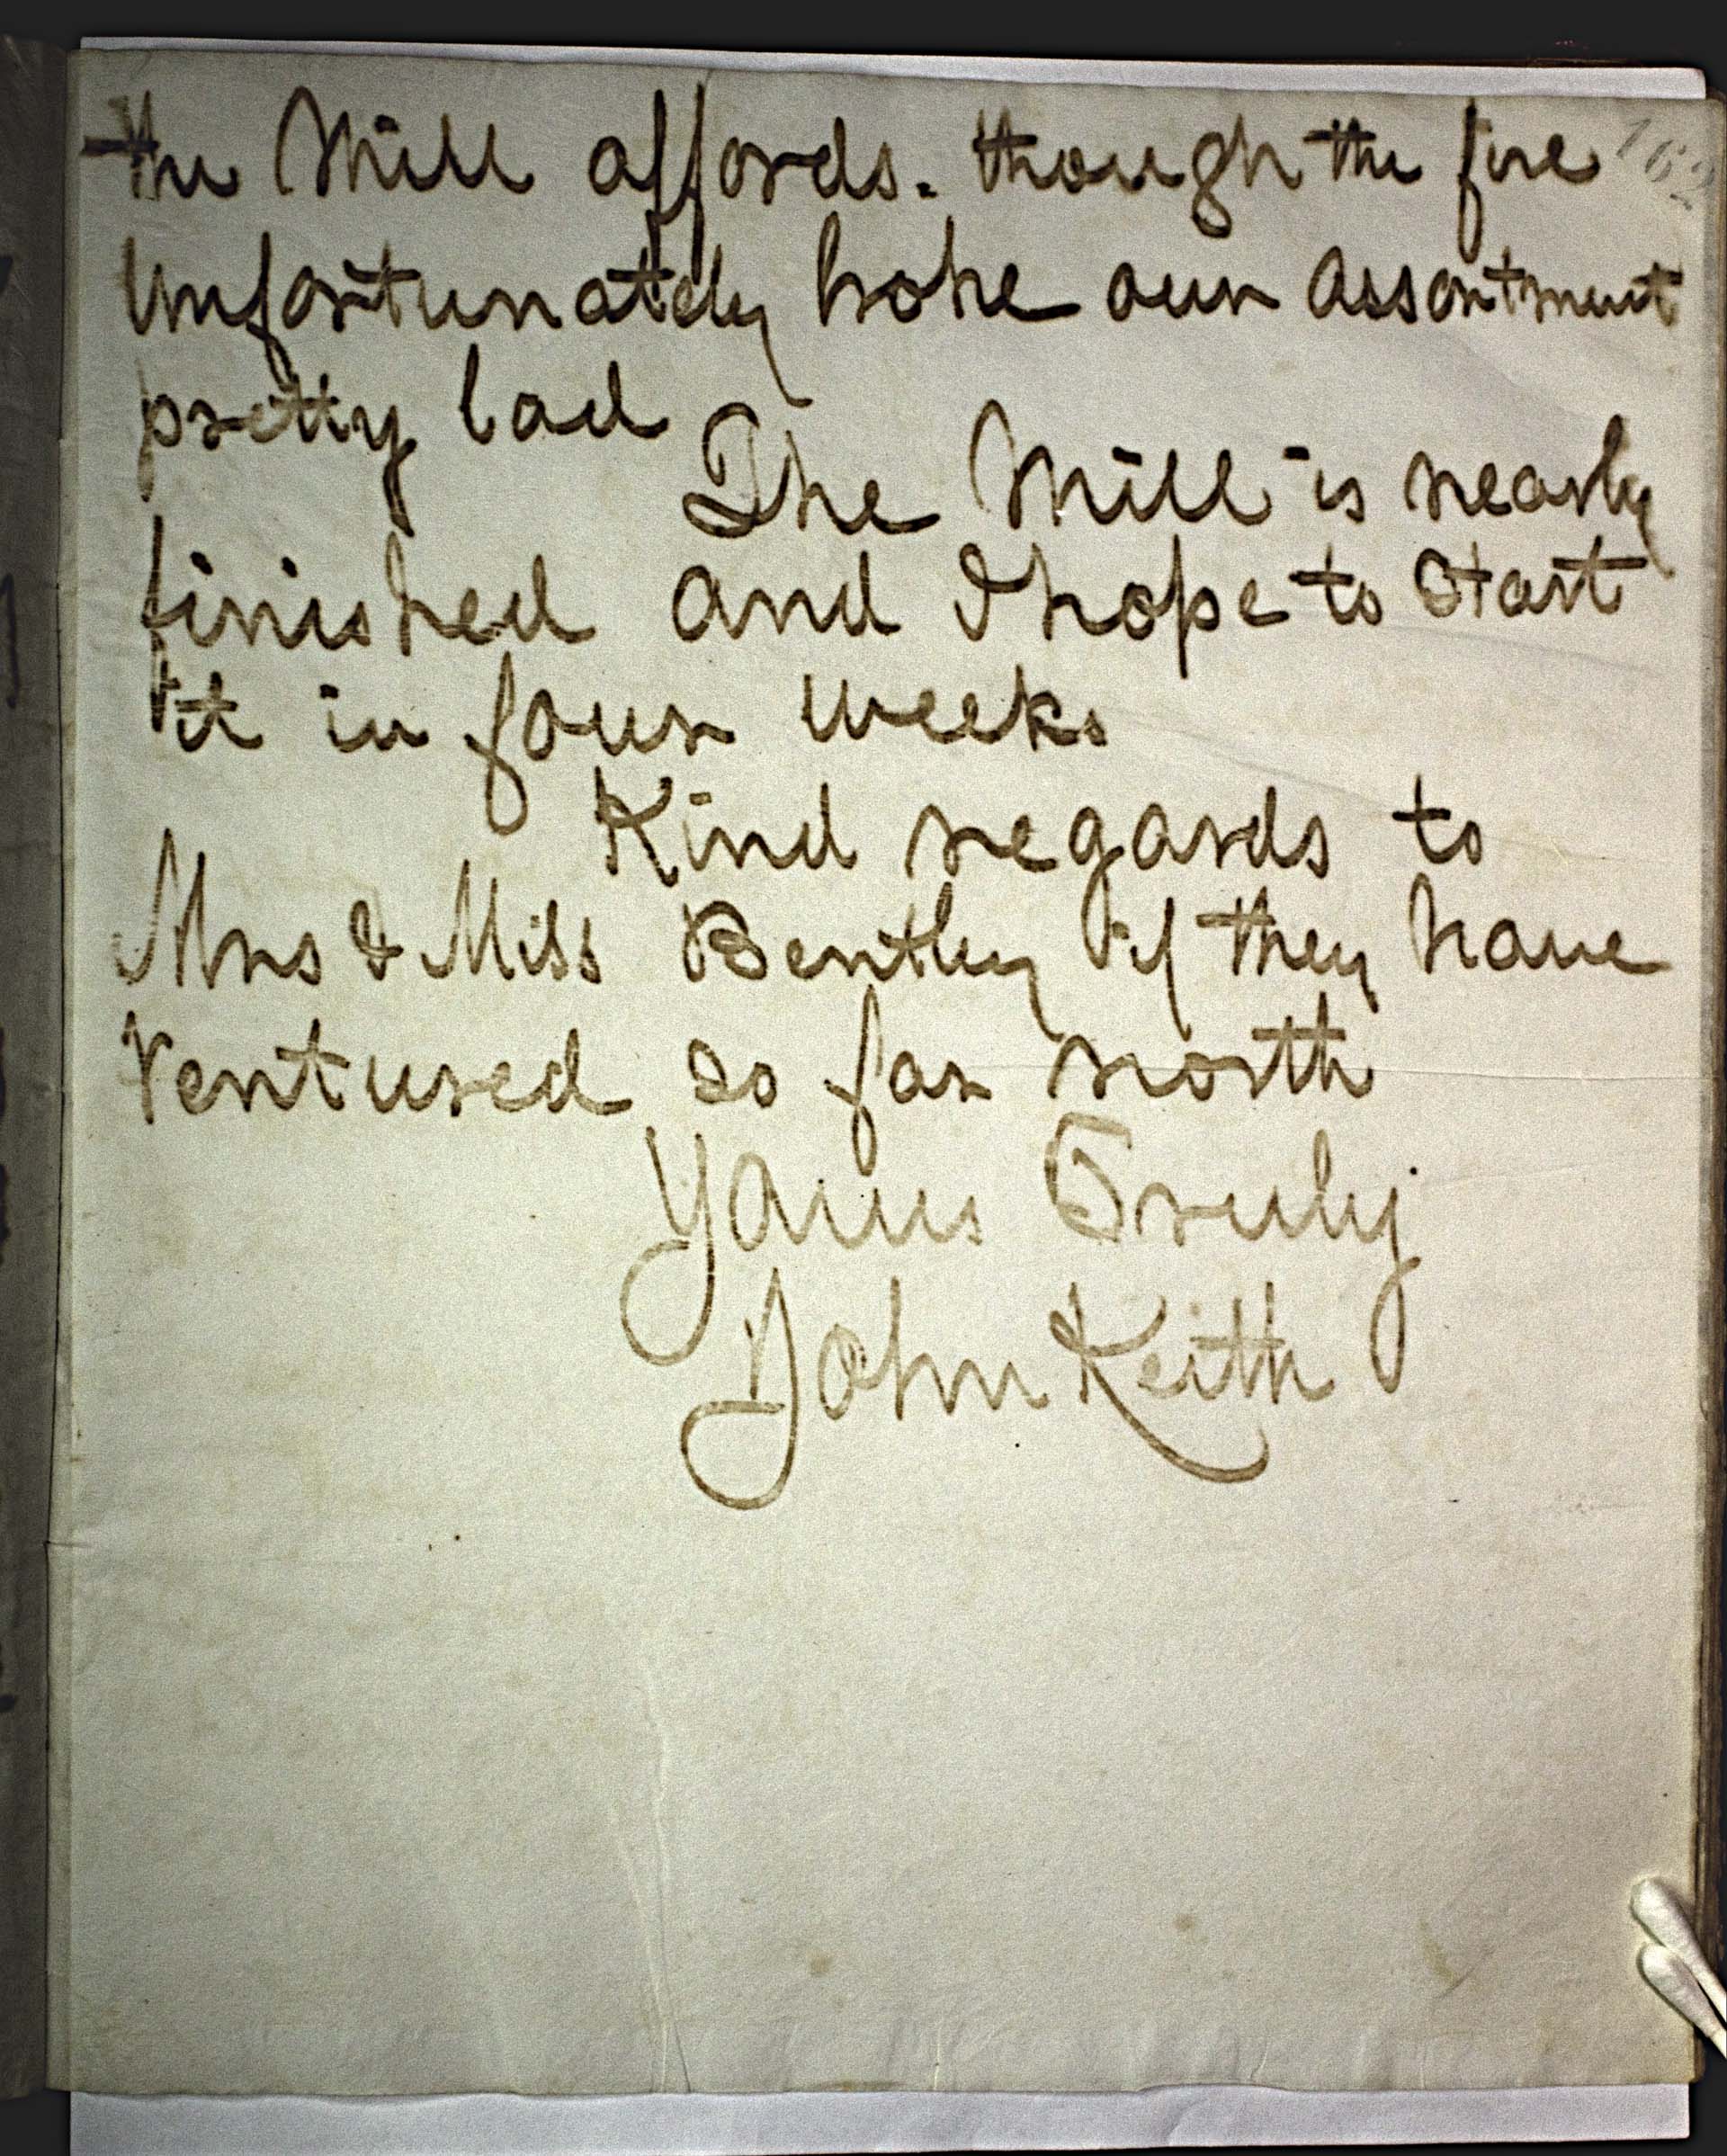 162
the Mill affords. though the fire
Unfortunately broke our assortment
pretty bad
The Mill is nearly
finished and I hope to Start
it in four weeks
Kind regards to
Mrs & Miss Bentley if they have
Ventured so far north
Yours Truly
John Keith